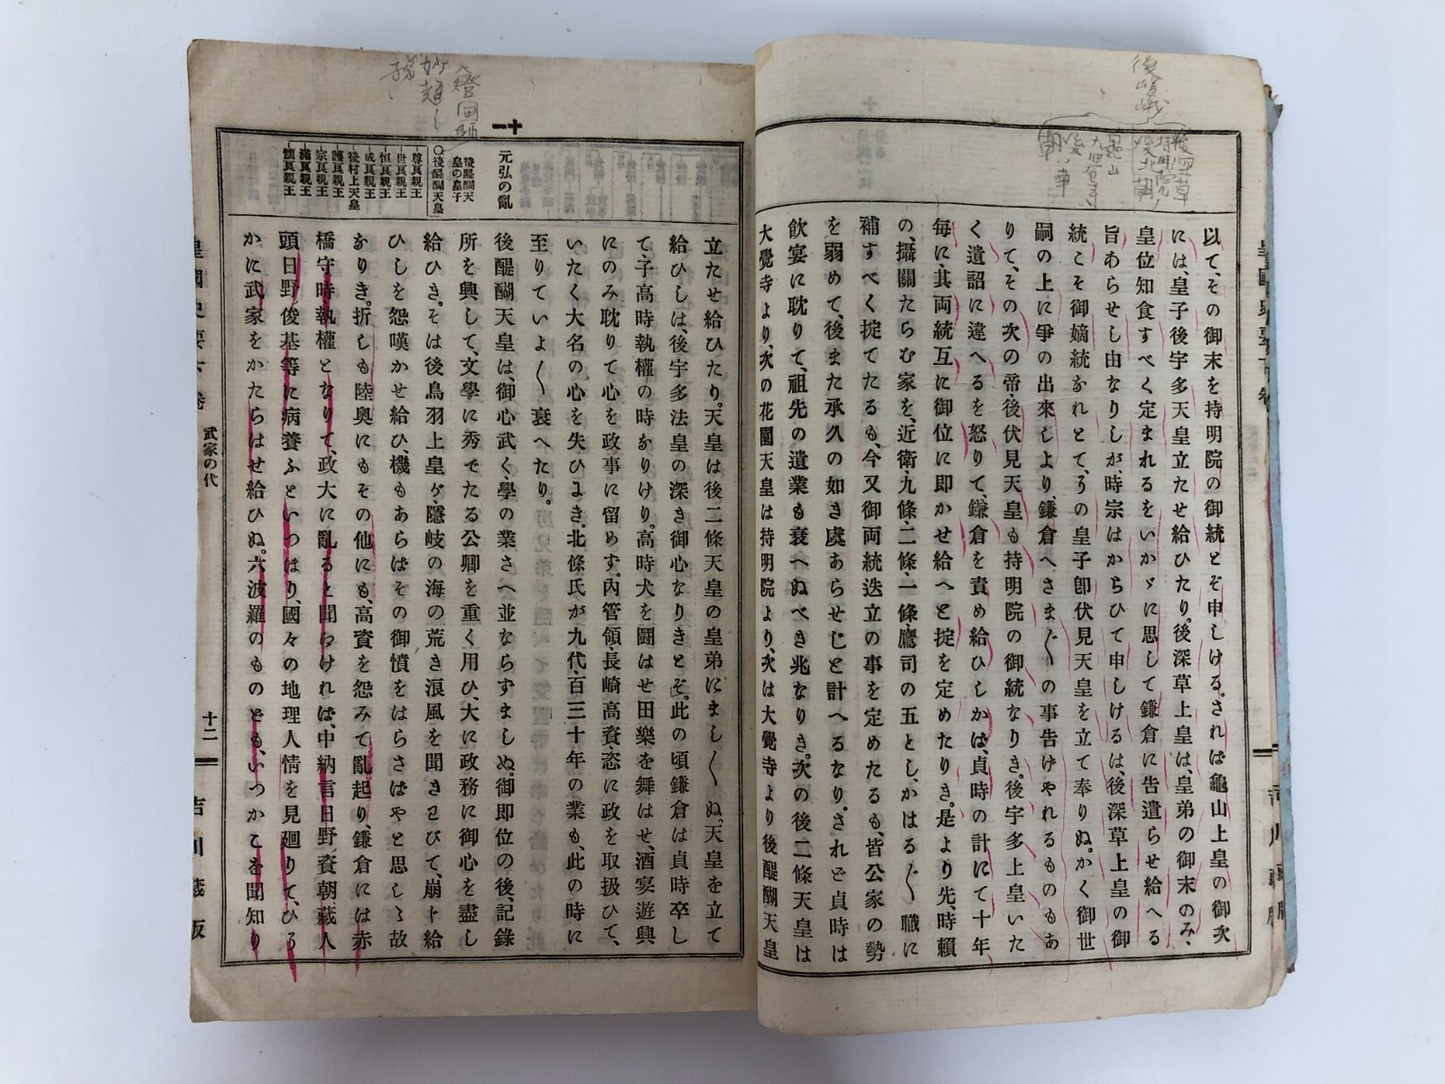 後嵯峨
以て、その御末を持明院の御統とぞ申しける。されは龜山上皇の御次
には、皇子後宇多天皇立たせ給ひたり。後深草上皇は、皇弟の御末のみ、
皇位知食すべく定まれるをいかゞに思して鎌倉に告遣らせ給へる
旨あらせし由なりしが、時宗はからひて申しけるは、後深草上皇の御
統こそ御嫡統なれとて、うの皇子卽伏見天皇を立て奉りぬ。かく御世
嗣の上に爭の出來しより、鎌倉へさま〲の事告げやれるものもあ
りて、その次の帝、後伏見天皇も持明院の御統なりき。後宇多上皇いた
く遺詔に違へるを怒りて、鎌倉を責め給ひしかは、貞時の計にて十年
毎に、其両統互に御位に即かせ給へと掟を定めたりき。是より先、時賴
の、攝關たらむ家を、近衛、九條、二條、一條、鷹司の五とし、かはる〲職に
補すべく掟てたるも、今又御両統迭立の事を定めたるも、皆公家の勢
を弱めて、後また承久の如き虞あらせじと計へるなり。されど貞時は
飮宴に耽りて、祖先の遺業も衰へぬべき兆なりき。次の後二條天皇は
大覺寺より、次の花園天皇は持明院より、次は大覺寺より後醍醐天皇
十一
元弘の亂
後醍醐天
皇の皇子
〇後醍醐天皇
尊良親王
世良親王
恒良親王
成良親王
後村上天皇
護良親王
宗良親王
滿良親王
懷良親王
立たせ給ひたり。天皇は後二條天皇の皇弟にまし〱ぬ。天皇を立て
給ひしは、後宇多法皇の深き御心なりきとぞ。此の頃鎌倉は貞時卒し
て、子高時執權の時なりけり。高時犬を鬪はせ田樂を舞はせ、酒宴遊興
にのみ耽りて心を政事に留めす。內管領、長崎高資、恣に政を取扱ひて、
いたく大名の心を失ひまき。北條氏が九代、百三十年の業も、此の時に
至りていよ〱衰へたり。
後醍醐天皇は、御心武く、學の業さへ並ならすましぬ。御即位の後、記錄
所を興して、文學に秀でたる公卿を重く用ひ、大に政務に御心を盡し
給ひき。そは後鳥羽上皇が、隱岐の海の荒き浪風を聞きわびて、崩れ給
ひしを怨嘆かせ給ひ、機もあらばその御憤をはらさばやと思しゝ故
なりき。折しも陸奧にもその他にも、高資を怨みて亂起り鎌倉には赤
橋守時執權となりて、政大に亂ると聞わけれは、中納言日野資朝藏人
頭日野俊基等に病養ふといつはり、國々の地理人情を見廻りて、ひろ
かに武家をかたらはせ給ひぬ。六波羅のものども、いつかこを聞知り
皇國史要下卷
武家の代
十二
吉川藏版